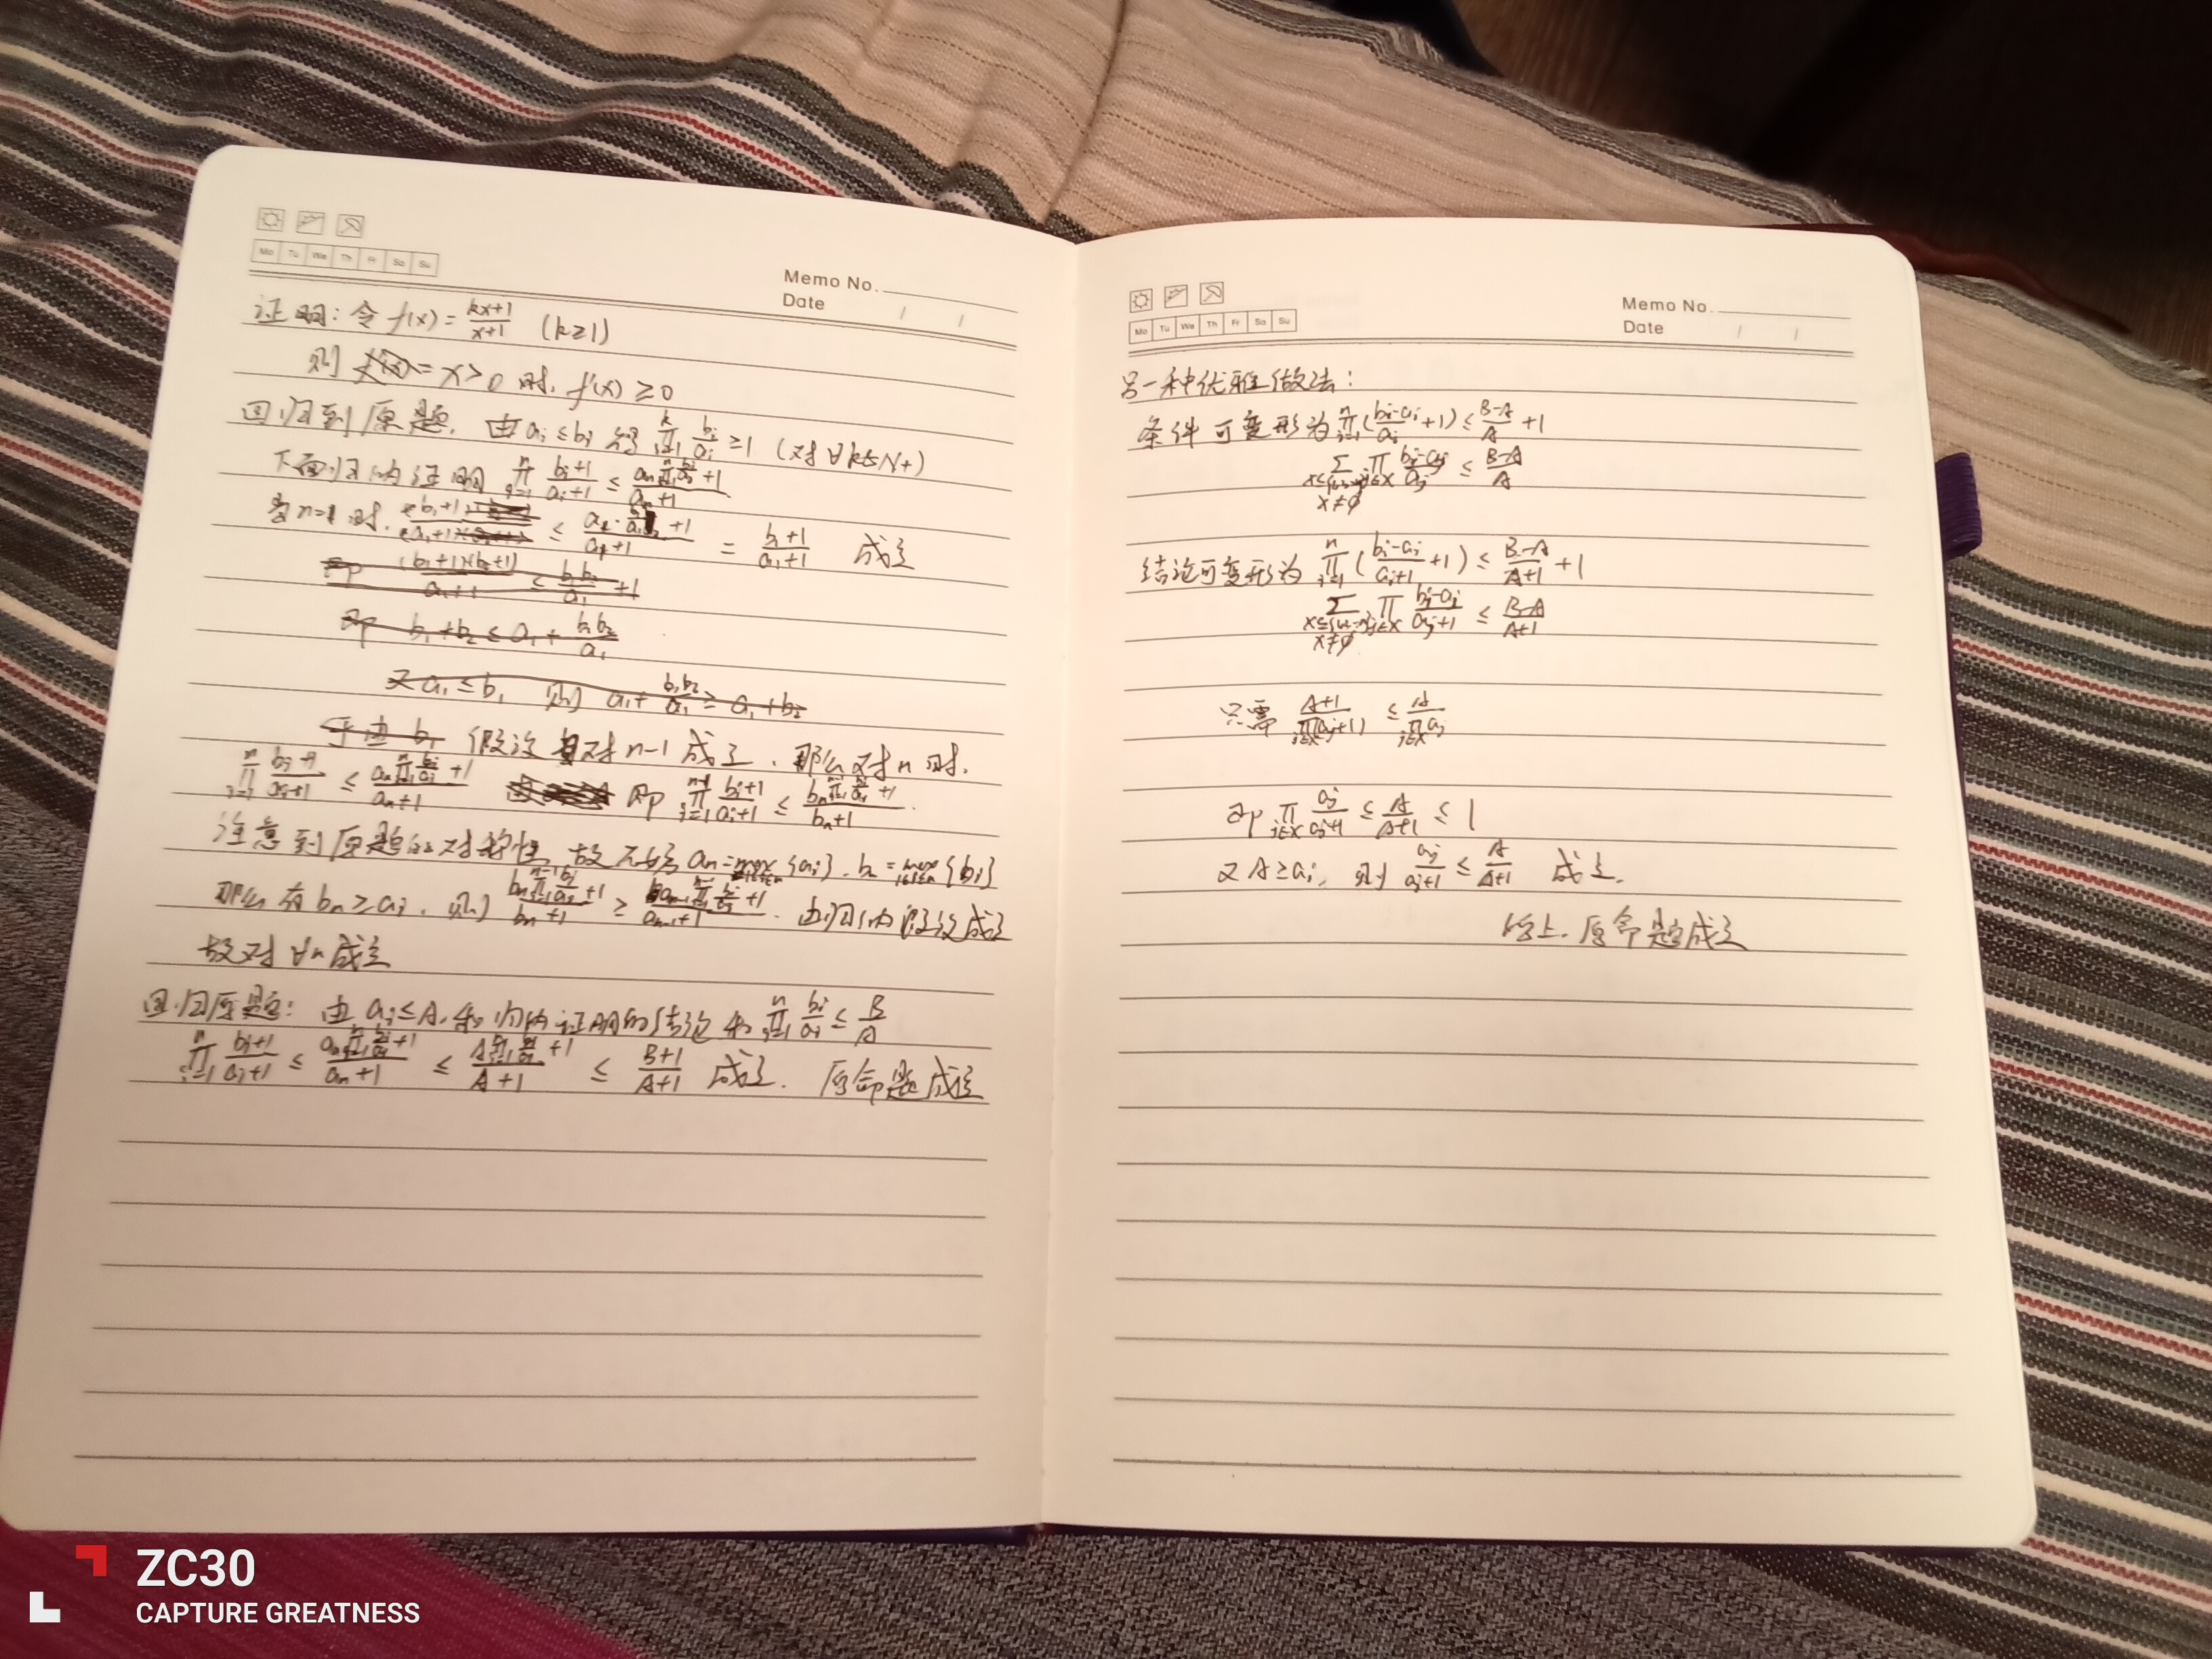 Mo Tu We Th Fr Sa Su
Memo No.
Date / /
证明: 令 f(x) = (kx+1)/(x+1) (k≥1)
则 x>0 时, f'(x) ≥ 0
回归到原题, 由 a_i ≤ b_i 得 ∏_{i=1}^{k} b_i/a_i ≥ 1 (对 ∀k∈N+)
下面归纳证明 ∏_{i=1}^{n} (b_i+1)/(a_i+1) ≤ (a_n∏_{i=1}^{n} b_i/a_i +1)/(a_n+1)
当 n=1 时, (b_1+1)/(a_1+1) ≤ (a_1·b_1/a_1 +1)/(a_1+1) = (b_1+1)/(a_1+1) 成立
即 (b_1+1)(b_2+1)/(a_1+1) ≤ b_1b_2/a_1 +1
即 b_1+b_2 ≤ a_1 + b_1b_2/a_1
又 a_1 ≤ b_1 则 a_1 + b_1b_2/a_1 ≥ a_1+b_2
假设对 n-1 成立, 那么对 n 时,
∏_{i=1}^{n} (b_i+1)/(a_i+1) ≤ (a_n∏_{i=1}^{n} b_i/a_i +1)/(a_n+1) 即 ∏_{i=1}^{n-1} (b_i+1)/(a_i+1) ≤ (b_n∏_{i=1}^{n-1} b_i/a_i +1)/(b_n+1).
注意到原题的对称性, 故不妨 a_n = max_{1≤i≤n}{a_i}, b_n = max_{1≤i≤n}{b_i}
那么有 b_n ≥ a_i, 则 (b_n∏_{i=1}^{n-1} b_i/a_i +1)/(b_n+1) ≥ (a_{n-1}∏_{i=1}^{n-1} b_i/a_i +1)/(a_{n-1}+1). 由归纳假设成立
故对 ∀n 成立
回归原题: 由 a_i ≤ A, 和归纳证明的结论和 ∏_{i=1}^{n} b_i/a_i ≤ B/A
∏_{i=1}^{n} (b_i+1)/(a_i+1) ≤ (a_n∏_{i=1}^{n} b_i/a_i +1)/(a_n+1) ≤ (A∏_{i=1}^{n} b_i/a_i +1)/(A+1) ≤ (B+1)/(A+1) 成立. 原命题成立
Mo Tu We Th Fr Sa Su
Memo No.
Date / /
另一种优雅做法:
条件可变形为 ∏_{i=1}^{n} ((b_i-a_i)/a_i +1) ≤ (B-A)/A +1
∑_{X⊆{1,…,n}, X≠∅} ∏_{j∈X} (b_j-a_j)/a_j ≤ (B-A)/A
结论可变形为 ∏_{i=1}^{n} ((b_i-a_i)/(a_i+1) +1) ≤ (B-A)/(A+1) +1
∑_{X⊆{1,…,n}, X≠∅} ∏_{j∈X} (b_j-a_j)/(a_j+1) ≤ (B-A)/(A+1)
只需 (A+1)/∏_{j∈X}(a_j+1) ≤ A/∏_{j∈X} a_j
即 ∏_{j∈X} a_j/(a_j+1) ≤ A/(A+1) ≤ 1
又 A ≥ a_i, 则 a_j/(a_j+1) ≤ A/(A+1) 成立.
综上, 原命题成立
ZC30
CAPTURE GREATNESS